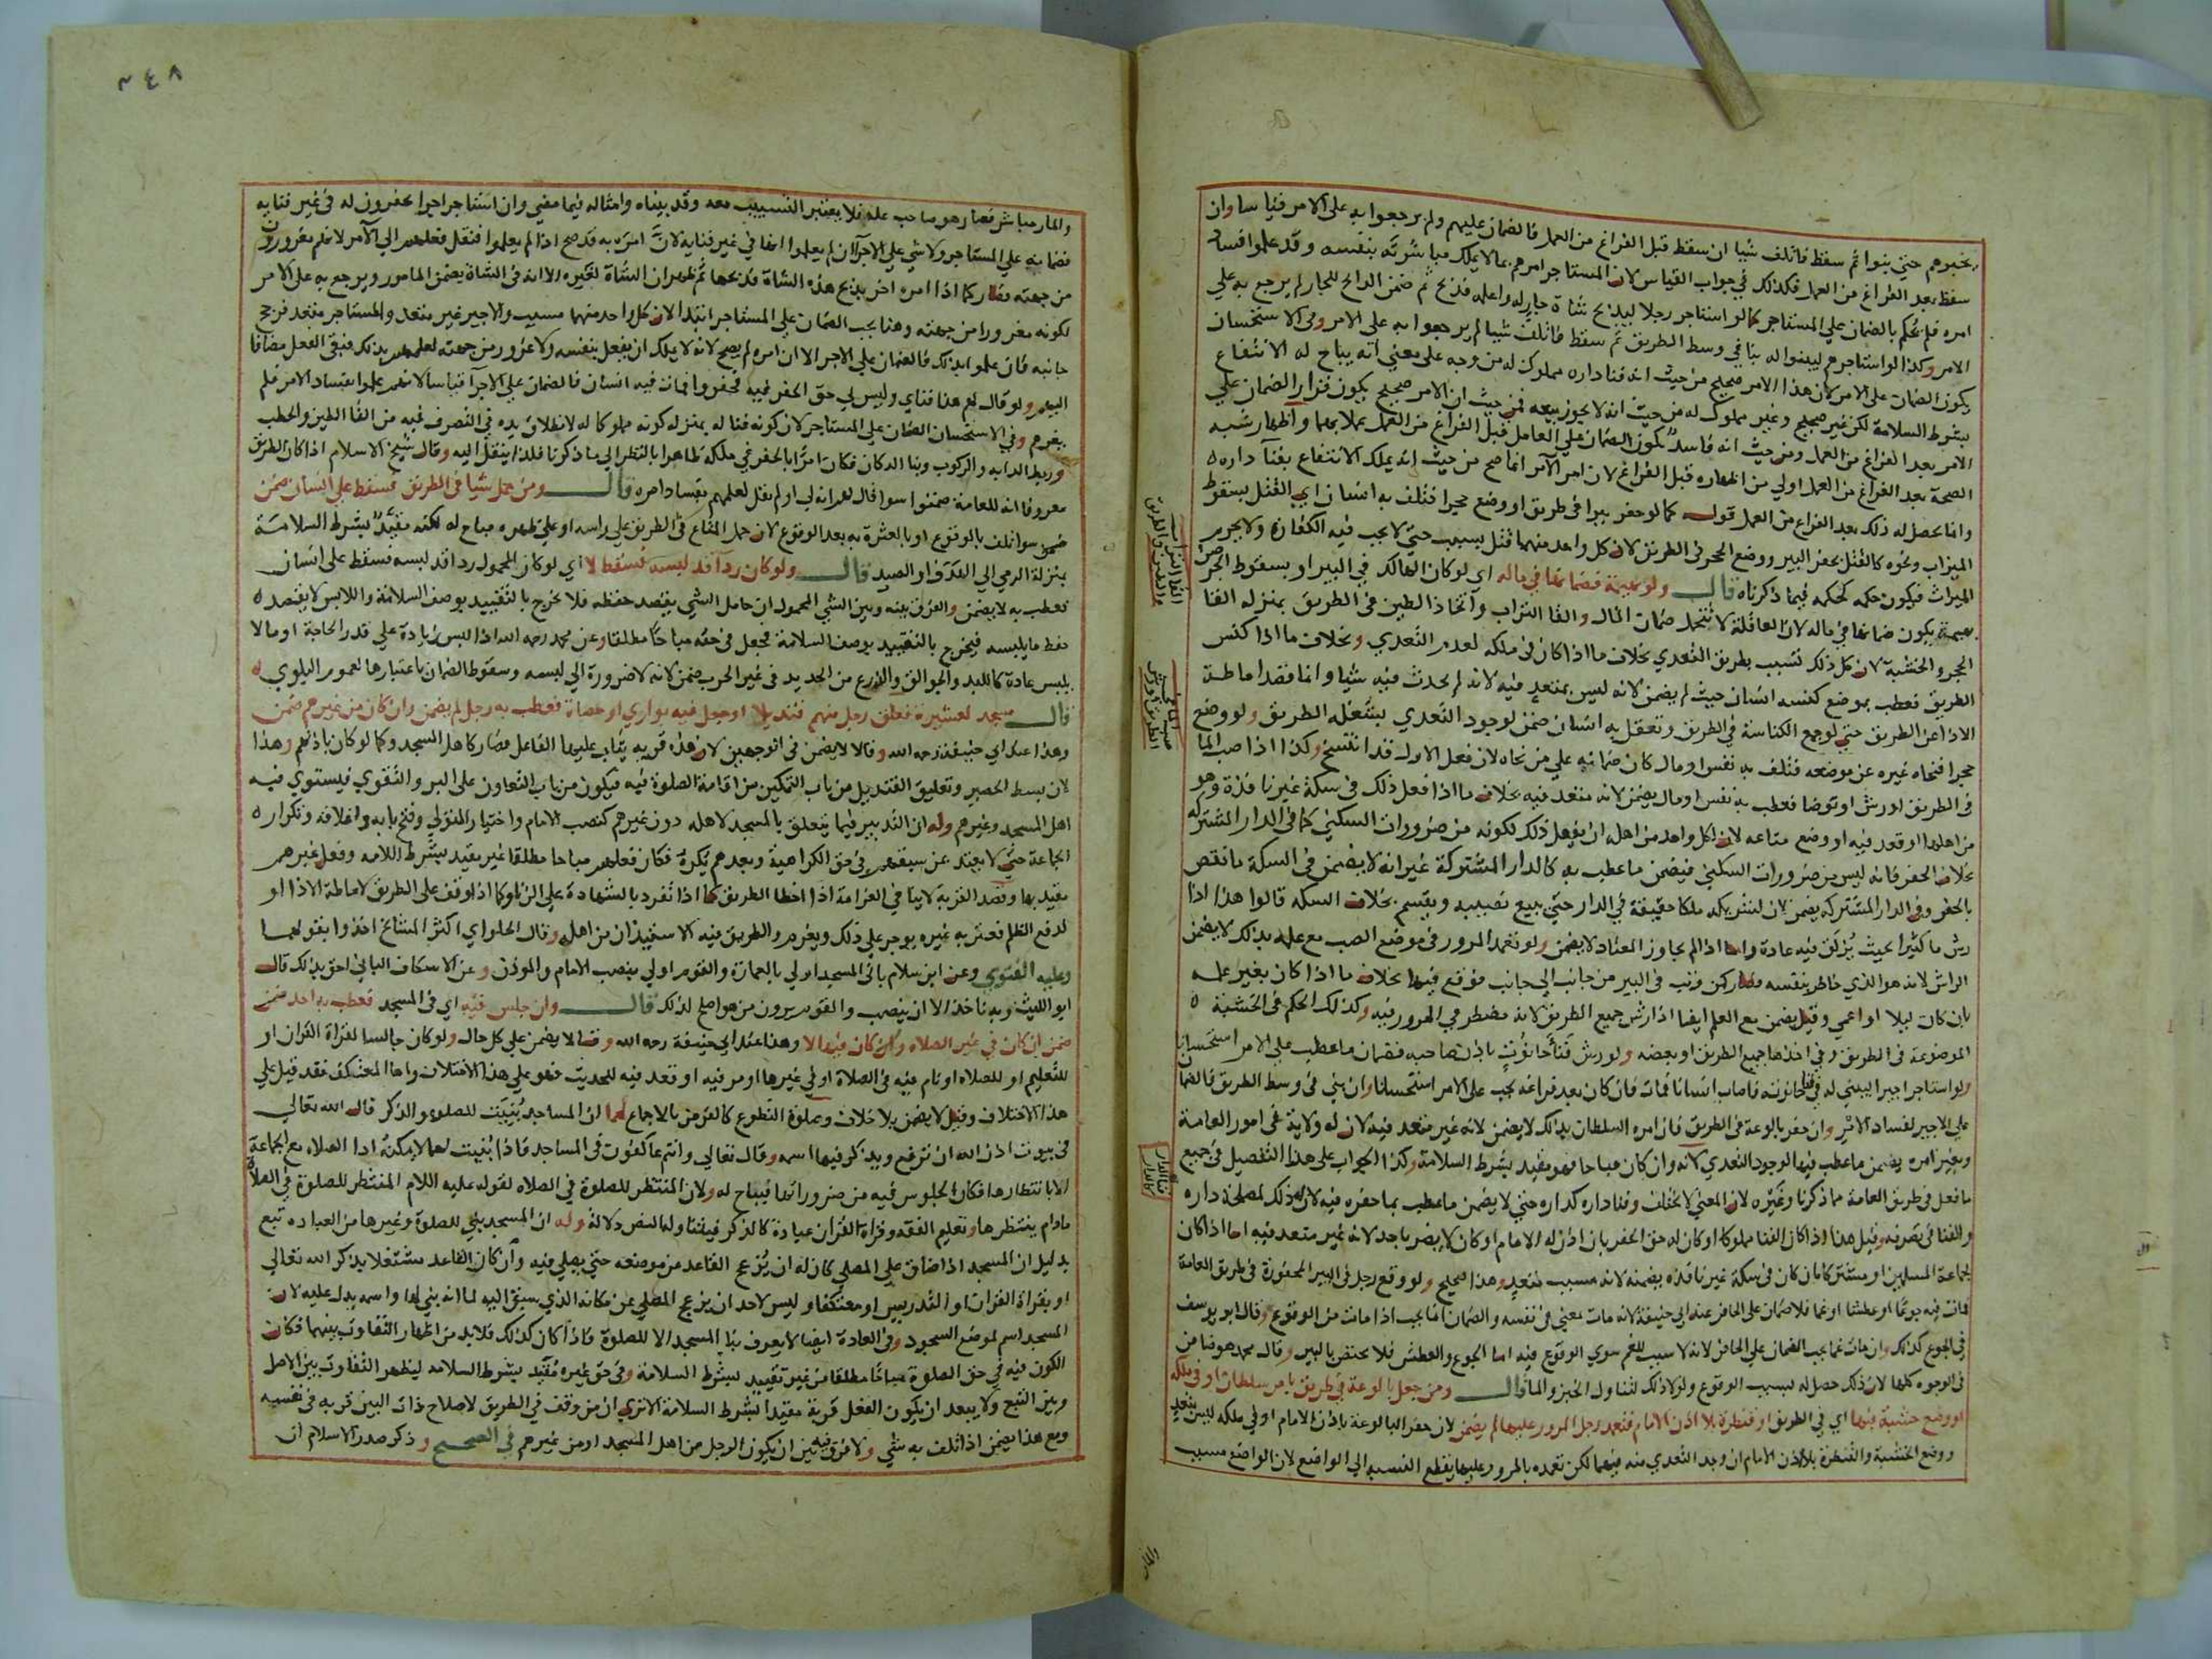 يخبروهم حتى بنوا ثم سقط فاتلف شيا ان سقط قبل الفراغ من العمل فالضمان عليهم ولم يرجعوا به على الامر قياسا وان
سقط بعد الفراغ من العمل فكذلك في جواب القياس لان المستاجر امرهم بما لا يملك مباشرته بنفسه وقد علموا فساد
امره فلم يحكم بالضمان على المستاجر كما لو استاجر رجلا ليذبح شاة جار له واعلمه فذبح ثم ضمن الذابح للجار لم يرجع به على
الامر وكذا لو استاجرهم ليبنوا له بنا في وسط الطريق ثم سقط فاتلف شيا لم يرجعوا به على الامر وفي الاستحسان
يكون الضمان على الامر لان هذا الامر صحيح من حيث ان فنا داره مملوك له من وجه على معنى انه يباح له الانتفاع
بشرط السلامة لكن غير صحيح وغير مملوك له من حيث انه لا يجوز بيعه فمن حيث ان الامر صحيح يكون قرار الضمان على
الامر بعد الفراغ من العمل ومن حيث انه فاسد يكون الضمان على العامل قبل الفراغ من العمل عملا بهما واظهار شبه
الصحة بعد الفراغ من العمل اولى من اظهاره قبل الفراغ لان امر الآمر انما صح من حيث انه يملك الانتفاع بفنا داره
وانما يحصل له ذلك بعد الفراغ من العمل قوله كما لو حفر بيرا في طريق او وضع حجرا فتلف به انسان اي القتل بسقوط
الميزاب ونحوه كالقتل بحفر البير ووضع الحجر في الطريق لان كل واحد منهما قتل بسبب حتى لا يجب فيه الكفارة ولا يحرم
الميراث فيكون حكمه كحكمه فيما ذكرناه قال ولو بهيمة فضمانها في ماله اي لو كان الهالك في البير او بسقوط الجرصن
بهيمة يكون ضمانها في ماله لان العاقلة لا تتحمل ضمان المال والقا التراب واتخاذ الطين في الطريق بمنزله القا
الحجر والخشبة لان كل ذلك تسبب بطريق التعدي بخلاف ما اذا كان في ملكه لعدم التعدي وبخلاف ما اذا كنس
الطريق فعطب بموضع كنسه انسان حيث لم يضمن لانه ليس بمتعد فيه لانه لم يحدث فيه شيا وانما قصد اماطة
الاذا عن الطريق حتى لو جمع الكناسة في الطريق وتعقل به انسان ضمن لوجود التعدي بشغله الطريق ولو وضع
حجرا فنحاه غيره عن موضعه فتلف به نفس او مال كان ضمانه على من نحاه لان فعل الاول قد انتسخ وكذا اذا صب الما
في الطريق او رش او توضا فعطب به نفس او مال يضمن لانه متعد فيه بخلاف ما اذا فعل ذلك في سكة غير نافذة وهو
من اهلها او قعد فيه او وضع متاعه لان لكل واحد من اهله ان يفعل ذلك لكونه من ضرورات السكني كما في الدار المشتركه
بخلاف الحفر فانه ليس من ضرورات السكني فيضمن ما عطب به كالدار المشتركة غير انه لا يضمن في السكة ما نقص
بالحفر وفي الدار المشتركه يضمن لان لشريكه ملكا حقيقة في الدار حتى يبيع نصيبه ويقسم بخلاف السكه قالوا هذا اذا
رش ما كثيرا بحيث يزلق فيه عادة واما اذا لم يجاوز المعتاد لا يضمن ولو تعمد المرور في موضع الصب مع علمه بذلك لا يضمن
الراش لانه هو الذي خاطر بنفسه فصار كمن وثب في البير من جانب الى جانب فوقع فيها بخلاف ما اذا كان بغير علمه
بان كان ليلا او اعمى وقيل يضمن مع العلم ايضا اذا رش جميع الطريق لانه مضطر في المرور فيه وكذلك الحكم في الخشبة
الموضوعة في الطريق في اخذها جميع الطريق او بعضه ولو رش فنا حانوت باذن صاحبه فضمان ما عطب على الامر استحسانا
ولو استاجر اجيرا ليبني له في فنا حانوته فاصاب انسانا فمات فان كان بعد فراغه يجب على الامر استحسانا وان بنى في وسط الطريق فالضمان
على الاجير لفساد الامر وان حفر بالوعة في الطريق فان امره السلطان بذلك لا يضمن لانه غير متعد فيه لان له ولاية في امور العامة
وبغير امره يضمن ما عطب فيها لوجود التعدي لانه وان كان مباحا فهو مقيد بشرط السلامة وكذا الجواب على هذا التفصيل في جميع
ما فعل في طريق العامة مما ذكرنا وغيره لان المعنى لا يختلف وفنا داره كداره حتى لا يضمن ما عطب بما حفره فيه لان له ذلك لمصلحة داره
والفنا في تصرفه وقيل هذا اذا كان الفنا مملوكا او كان له حق الحفر بان اذن له الامام او كان لا يضر باحد لانه غير متعد فيه اما اذا كان
لجماعة المسلمين او مشتركا بان كان في سكة غير نافذه يضمنه لانه مسبب متعد وهذا صحيح ولو وقع رجل في البير المحفورة في طريق العامة
فمات فيه جوعا او عطشا او غما فلا ضمان على الحافر عند ابي حنيفة لانه مات بمعنى في نفسه والضمان انما يجب اذا مات من الوقوع وقال ابو يوسف
في الجوع كذلك وان مات غما يجب الضمان على الحافر لانه لا سبب للغم سوى الوقوع فيه اما الجوع والعطش فلا يختص بالبير وقال محمد هو ضامن
في الوجوه كلها لان ذلك حصل له بسبب الوقوع ولولا ذلك لتناول الخبز والما قال ومن جعل بالوعة في طريق بامر سلطان او في ملكه
او وضع خشبة فيها اي في الطريق او قنطرة بلا اذن الامام فتعمد رجل المرور عليها لم يضمن لان حفر البالوعة باذن الامام او في ملكه ليس بتعد
ووضع الخشبة والقنطرة بلا اذن الامام ان وجد التعدي منه فيهما لكن تعمده بالمرور عليها يقطع النسبة الى الواضع لان الواضع مسبب
والمار
٢٤٨
والمار مباشر فصار هو صاحب علة فلا يعتبر التسبيب معه وقد بيناه وامثاله فيما مضى وان استاجر اجيرا يحفرون له في غير فنايه
فضمانه على المستاجر ولا شي على الاجرا ان لم يعلموا انها في غير فنايه لان امره به قد صح اذا لم يعلموا فنقل فعلهم الى الآمر لانهم مغرورون
من جهته فصار كما اذا امره اخر بذبح هذه الشاة فذبحها ثم ظهر ان الشاة لغيره الا انه في الشاة يضمن المامور ويرجع به على الامر
لكونه مغرورا من جهته وهنا يجب الضمان على المستاجر ابتدا لان كل واحد منهما مسبب والاجير غير متعد والمستاجر متعد فرجح
جانبه فان علموا بذلك فالضمان على الاجرا لان امره لم يصح لانه لا يملك ان يفعل بنفسه ولا غرور من جهته لعلمهم بذلك فبقي الفعل مضافا
اليهم ولو قال لهم هذا فناي وليس لي حق الحفر فيه فحفروا فمات فيه انسان فالضمان على الاجرا قياسا لانهم علموا بفساد الامر فلم
يغرهم وفي الاستحسان الضمان على المستاجر لان كونه فنا له بمنزله كونه مملوكا له لانطلاق يده في التصرف فيه من القا الطين والحطب
وربط الدابه والركوب وبنا الدكان فكان امرا بالحفر في ملكه ظاهرا بالنظر الى ما ذكرنا فلذا ينتقل اليه وقال شيخ الاسلام اذا كان الطريق
معروفا انه للعامة ضمنوا سوا قال لهم انه لي او لم يقل لعلمهم بفساد امره قال ومن حمل شيا في الطريق فسقط على انسان ضمن
ضمن سوا تلف بالوقوع او بالعثرة به بعد الوقوع لان حمل المتاع في الطريق على راسه او على ظهره مباح له لكنه مقيد بشرط السلامة
بمنزلة الرمي الى الهدف او الصيد قال ولو كان ردا قد لبسه فسقط لا اي لو كان المحمول ردا قد لبسه فسقط على انسان
فعطب به لا يضمن والفرق بينه وبين الشي المحمول ان حامل الشي يقصد حفظه فلا يخرج بالتقييد بوصف السلامة واللابس لا يقصد
حفظ ما يلبسه فيحرج بالتقييد بوصف السلامة فجعل في حقه مباحا مطلقا وعن محمد رحمه الله اذا لبس زيادة على قدر الحاجة او ما لا
يلبس عادة كاللبد والجوالق والدرع من الحديد في غير الحرب ضمن لانه لا ضرورة الى لبسه وسقوط الضمان باعتبارها لعموم البلوي
قال مسجد لعشيرة فعلق رجل منهم قنديلا او جعل فيه بواري او حصاة فعطب به رجل لم يضمن وان كان من غيرهم ضمن
وهذا عند ابي حنيفة رحمه الله وقالا لا يضمن في الوجهين لان هذه قربه يثاب عليها الفاعل فصار كاهل المسجد وكما لو كان باذنهم وهذا
لان بسط الحصير وتعليق القنديل من باب التمكين من اقامة الصلوة فيه فيكون من باب التعاون على البر والتقوي فيستوي فيه
اهل المسجد وغيرهم وله ان التدبير فيما يتعلق بالمسجد لاهله دون غيرهم كنصب الامام واختيار المتولي وفتح بابه واغلاقه وتكرار
الجماعة حتى لا يعتد بمن سبقهم في حق الكراهية وبعدهم يكره فكان فعلهم مباحا مطلقا غير مقيد بشرط السلامه وفعل غيرهم
مقيد بها وقصد القربة لا ينافي الغرامة اذا اخطا الطريق كما اذا تفرد بالشهادة على الزنا وكما اذا وقف على الطريق لاماطة الاذا او
لدفع الظلم فعثر به غيره يوجر على ذلك ويغرم والطريق فيه الاستيذان من اهله وقال الحلواي اكثر المشايخ اخذوا بقولهما
وعليه الفتوي وعن ابن سلام باني المسجد اولى بالعمارة والقوم اولى بنصب الامام والموذن وعن الاسكاف الباني احق بذلك قال
ابو الليث وبه ناخذ الا ان ينصب والقوم يرون من هو اصلح لذلك قال وان جلس فيه اي في المسجد فعطب به احد ضمن
ضمن ان كان في غير الصلاه وان كان فيها لا وهذا عند ابي حنيفة رحمه الله وقالا لا يضمن على كل حال ولو كان جالسا لقراة القران او
للتعليم او للصلاه او نام فيه في الصلاة او في غيرها او مر فيه او قعد فيه للحديث فهو على هذا الاختلاف واما المعتكف فقد قيل على
هذا الاختلاف وقيل لا يضمن بلا خلاف وصلوة التطوع كالفرض بالاجماع لهما ان المساجد بنيت للصلوة والذكر قال الله تعالى
في بيوت اذن الله ان ترفع ويذكر فيها اسمه وقال تعالى وانتم عاكفون في المساجد فاذا بنيت لها لا يمكنه ادا الصلاه مع الجماعة
الا بانتظارها فكان الجلوس فيه من ضروراتها فيباح له ولان المنتظر للصلوة في الصلاه لقوله عليه السلام المنتظر للصلوة في الصلاة
مادام ينتظرها وتعليم الفقه وقراة القران عبادة كالذكر وله ان المسجد بني للصلوة وغيرها من العباده تبع
بدليل ان المسجد اذا ضاق على المصلي كان له ان يزعج القاعد من موضعه حتى يصلي فيه وان كان القاعد مشتغلا بذكر الله تعالى
او بقراة القران او التدريس او معتكفا وليس لاحد ان يزعج المصلي من مكانه الذي سبق اليه لما انه بني لها واسمه يدل عليه لان
المسجد اسم لموضع السجود وفي العادة ايضا لا يعرف بنا المسجد الا للصلوة فاذا كان كذلك فلابد من اظهار التفاوت بينهما فكان
الكون فيه في حق الصلوة مباحا مطلقا من غير تقييد بشرط السلامة وفي حق غيره مقيد بشرط السلامه ليظهر التفاوت بين الاصل
وبين التبع ولا يبعد ان يكون الفعل قربة مقيدا بشرط السلامة الا ترى ان من وقف في الطريق لاصلاح ذات البين قربه في نفسه
ومع هذا يضمن اذا تلف به شي ولا فرق فيه بين ان يكون الرجل من اهل المسجد او من غيرهم في الصحيح وذكر صدر الاسلام ان